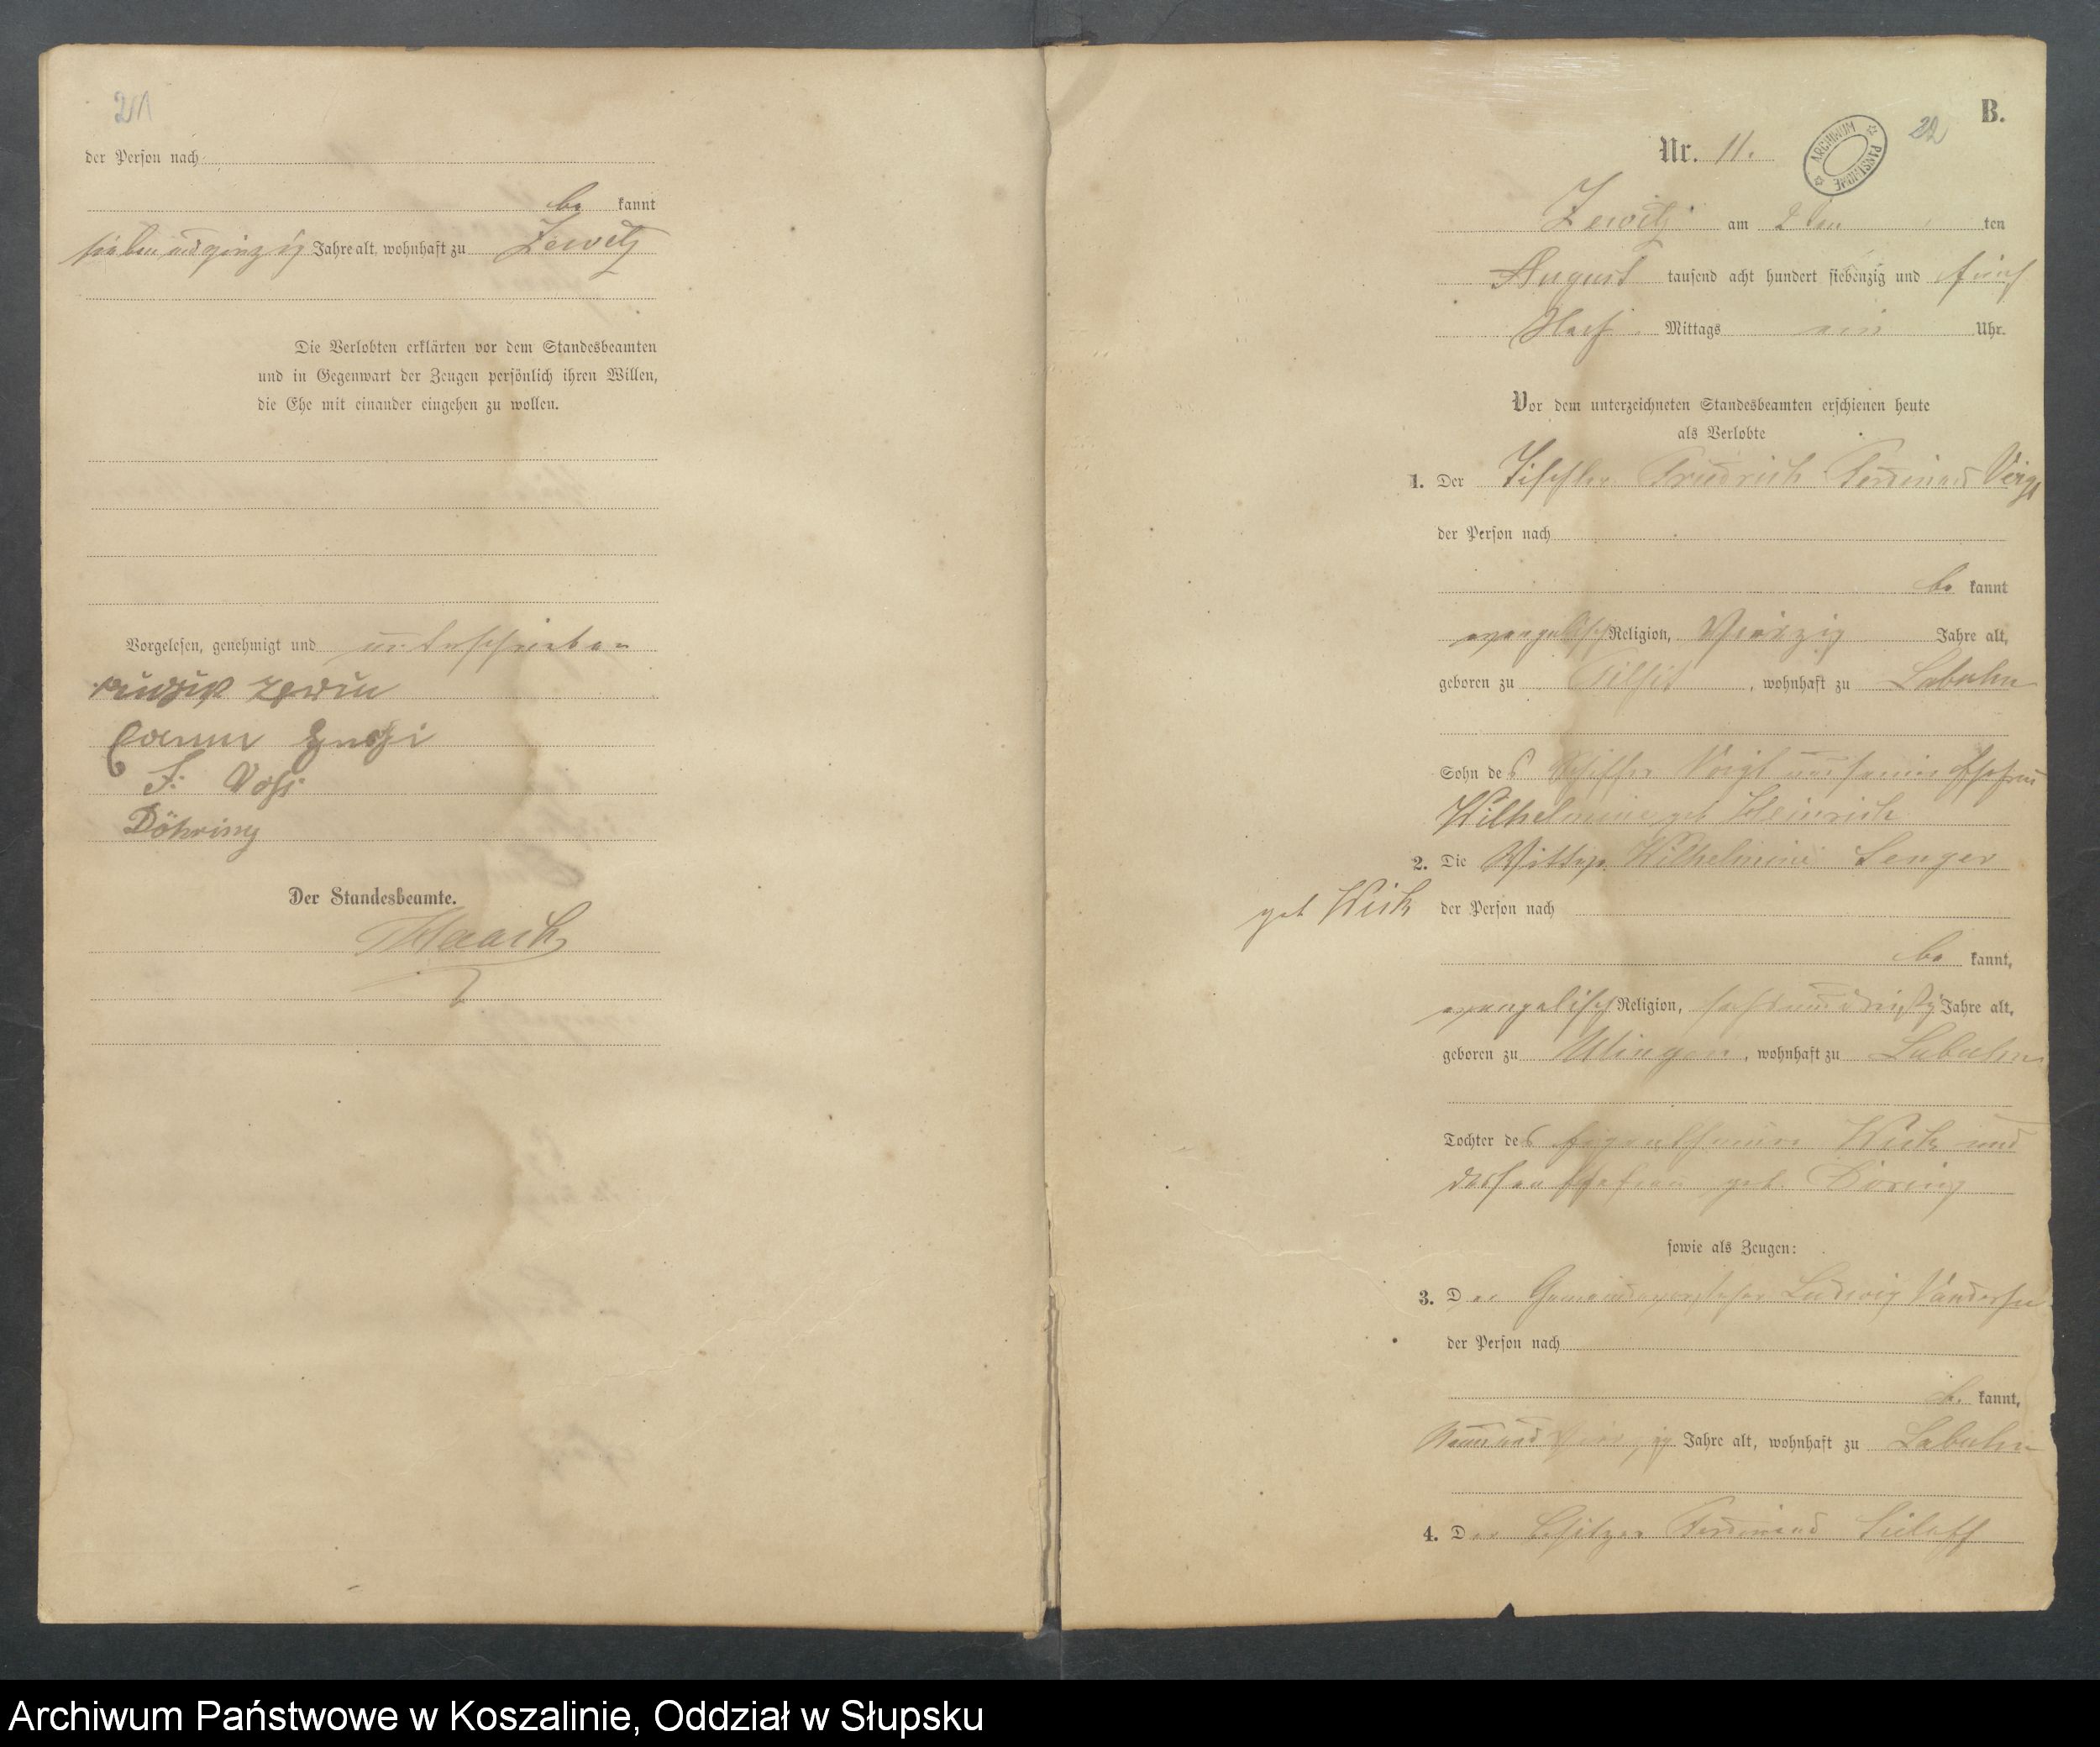 21
der Person nach
be kannt
Jahre alt, wohnhaft zu Zewitz
Die Verlobten erklärten vor dem Standesbeamten
und in Gegenwart der Zeugen persönlich ihren Willen,
die Ehe mit einander eingehen zu wollen.
Vorgelesen, genehmigt und unterschrieben
F. Voß
Döhring
Der Standesbeamte.
Haack
B.
22
Nr. 11.
ARCHIWUM PAŃSTWOWE
Zewitz am 2ten ten
August tausend acht hundert siebenzig und fünf
Nach Mittags ein Uhr.
Vor dem unterzeichneten Standesbeamten erschienen heute
als Verlobte
1. Der Tischler Friedrich Ferdinand Voigt
der Person nach
be kannt
evangelisch Religion, Vierzig Jahre alt,
geboren zu Tilsit, wohnhaft zu Labuhn
Sohn des Voigt und seine Ehefrau
Wilhelmine geb Heinrich
2. Die Wittwe Wilhelmine Senger
geb Wick der Person nach
be kannt,
evangelisch Religion, Jahre alt,
geboren zu Ulingen, wohnhaft zu Labuhn
Tochter des Eigenthümers Wick und
dessen Ehefrau geb. Döring
sowie als Zeugen:
3. Der Gemeindevorsteher Ludwig
der Person nach
be kannt,
Neunundvierzig Jahre alt, wohnhaft zu Labuhn
4. Der Besitzer Ferdinand
Archiwum Państwowe w Koszalinie, Oddział w Słupsku